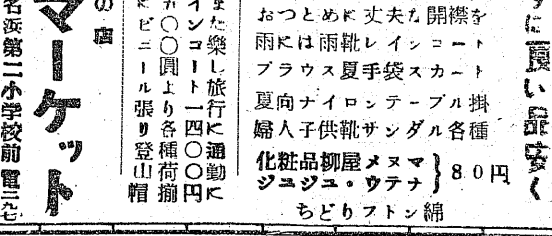 うに良い品安く
おつとめに丈夫な開襟を
雨には雨靴レインコート
ブラウス夏手袋スカート
夏向ナイロンテーブル掛
婦人子供靴サンダル各種
化粧品柳屋メヌマ
ジュジュ・ウテナ
80円
ちどりフトン綿
また楽し旅行に通勤に
インコート一四〇〇圓
〇〇圓より各種荷揃
にビニール張り登山帽
の店
マーケット
名浜第二小学校前 電二九七